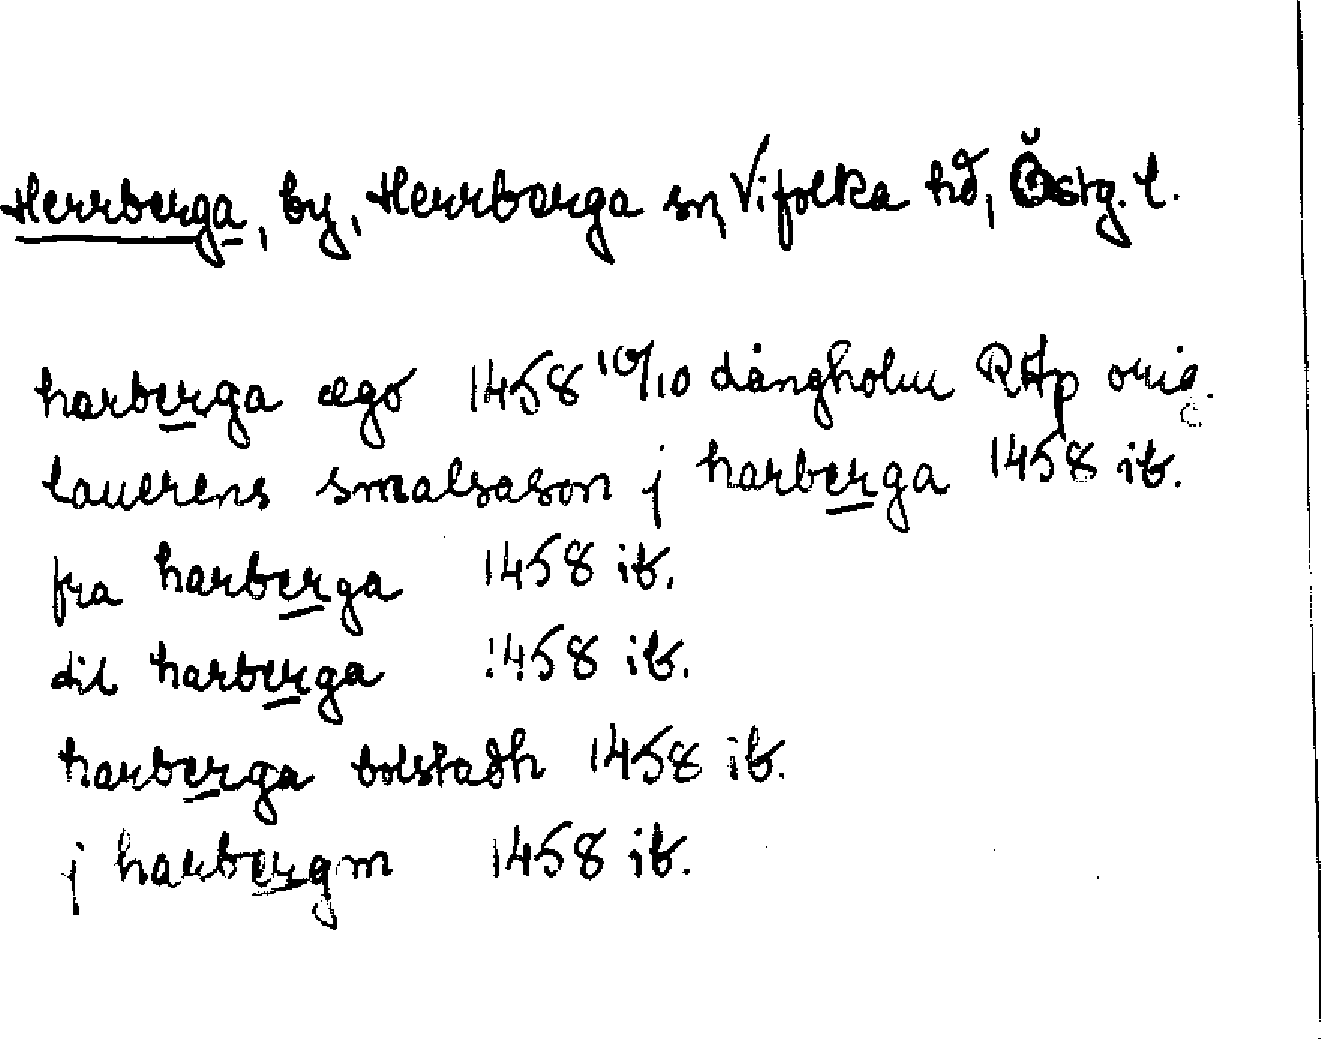 Herrberga, by, Herrberga sn, Vifolka hd, Östg. l.
harberga ægo 1458 10/10 Långholm RAp orig.
laurens smalsason j harberga 1458 ib.
fra harberga 1458 ib.
til harberga 1458 ib.
harberga bolstadh 1458 ib.
j harbergm 1458 ib.